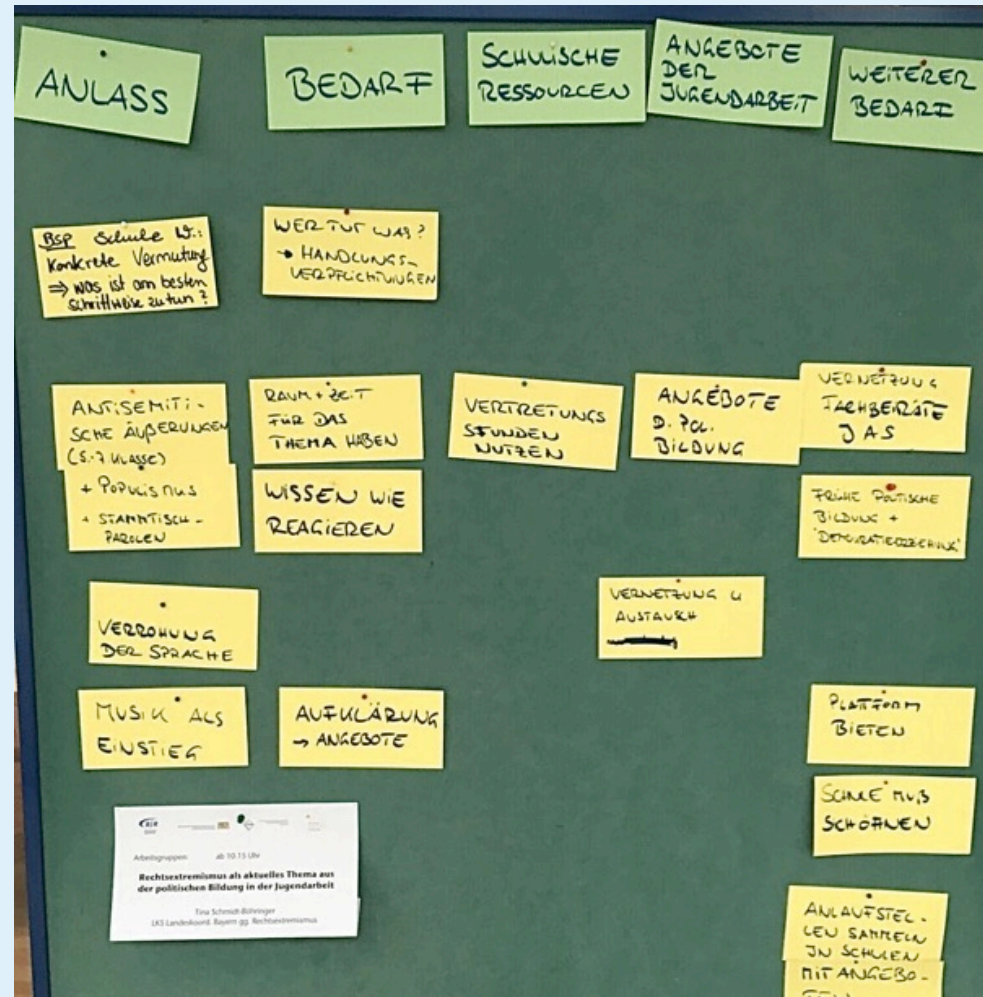 ANLASS
BEDARF
SCHULISCHE
RESSOURCEN
ANGEBOTE
DER
JUGENDARBEIT
WEITERER
BEDARF
BSP Schule W.:
Konkrete Vermutung
⇒ was ist am besten
schrittweise zu tun?
WER TUT WAS?
→ HANDLUNGS-
VERPFLICHTUNGEN
ANTISEMITI-
SCHE ÄUßERUNGEN
(5.-7. KLASSE)
+ POPULISMUS
+ STAMMTISCH-
PAROLEN
RAUM + ZEIT
FÜR DAS
THEMA HABEN
WISSEN WIE
REAGIEREN
VERTRETUNGS
STUNDEN
NUTZEN
ANGEBOTE
D. POL.
BILDUNG
VERNETZUNG
FACHBEIRÄTE
JAS
FRÜHE POLITISCHE
BILDUNG +
"DEMOKRATIEERZIEHUNG"
VERROHUNG
DER SPRACHE
VERNETZUNG U
AUSTAUSCH
MUSIK ALS
EINSTIEG
AUFKLÄRUNG
→ ANGEBOTE
PLATTFORM
BIETEN
SCHULE MUß
SCHÖFFNEN
ANLAUFSTEL-
LEN SAMMELN
IN SCHULEN
MIT ANGEBO-
Arbeitsgruppen: ab 10.15 Uhr
Rechtsextremismus als aktuelles Thema aus
der politischen Bildung in der Jugendarbeit
Tina Schmidt-Böhringer
LKS Landeskoord. Bayern gg. Rechtsextremismus